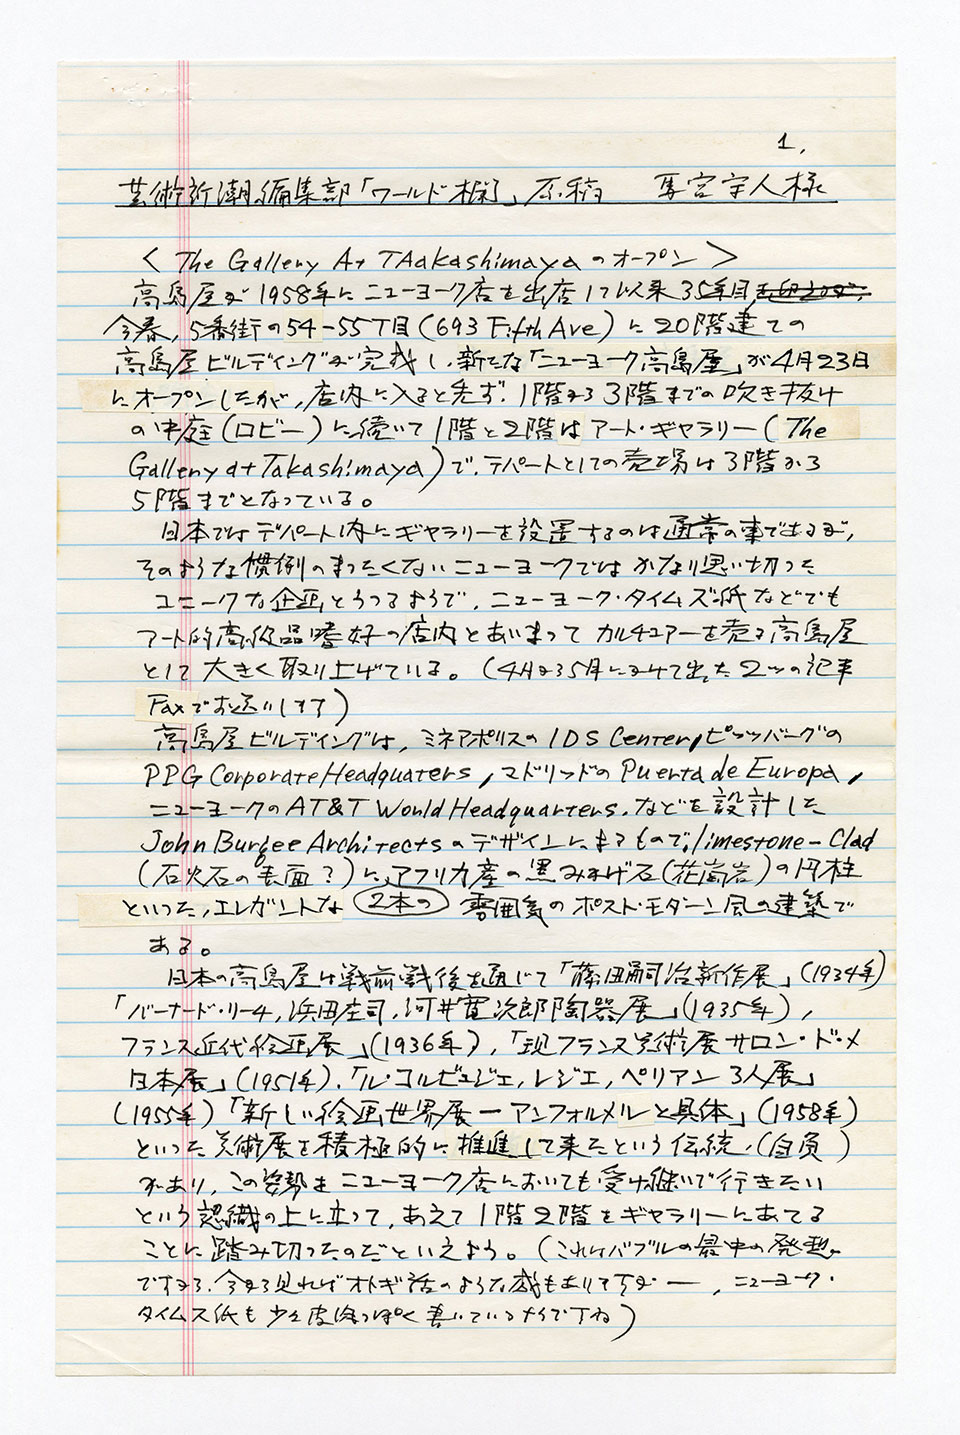 1.
芸術新潮編集部「ワールド欄」原稿
< The Gallery At TAakashimaya のオープン >
高島屋が1958年にニューヨーク店を出店して以来35年目
今春、5番街の54-55丁目(693 Fifth Ave)に20階建ての
高島屋ビルディングが完成し、新たな「ニューヨーク高島屋」が4月23日
にオープンしたが、店内に入ると先ず、1階から3階までの吹き抜け
の中庭(ロビー)に続いて1階と2階はアート・ギャラリー(The
Gallery at Takashimaya)で、デパートとしての売場は3階から
5階までとなっている。
日本ではデパート内にギャラリーを設置するのは通常の事であるが、
そのような慣例のまったくないニューヨークではかなり思い切った
ユニークな企画とうつるようで、ニューヨーク・タイムズ紙などでも
アート的高級品嗜好の店内とあいまってカルチュアーを売る高島屋
として大きく取り上げている。(4月から5月にかけて出た2つの記事
Faxでお送りします)
高島屋ビルディングは、ミネアポリスのIDS Center, ピッツバーグの
PPG Corporate Headquaters, マドリッドのPuerta de Europa,
ニューヨークのAT&T World Headquarters, などを設計した
John Burgee Architectsのデザインによるもので、limestone-Clad
(石灰石の表面?)に、アフリカ産の黒みかげ石(花崗岩)の円柱
といった、エレガントな 2本の 雰囲気のポスト・モダーン風の建築で
ある。
日本の高島屋は戦前戦後を通じて「藤田嗣治新作展」(1934年)
「バーナード・リーチ, 浜田庄司, 河井寛次郎陶器展」(1935年),
フランス近代絵画展」(1936年), 「現フランス美術展サロン・ド・メ
日本展」(1951年)、「ル・コルビュジェ, レジェ, ペリアン3人展」
(1955年)「新しい絵画世界展ーアンフォルメルと具体」(1958年)
といった美術展を積極的に推進して来たという伝統、(自負)
があり、この姿勢をニューヨーク店においても受け継いで行きたい
という認識の上に立って、あえて1階2階をギャラリーにあてる
ことに踏み切ったのだといえよう。(これはバブルの最中の発想
ですから、今から見ればオトギ話のような感もありますがー, ニューヨーク・
タイムス紙も少々皮肉っぽく書いているようですね)